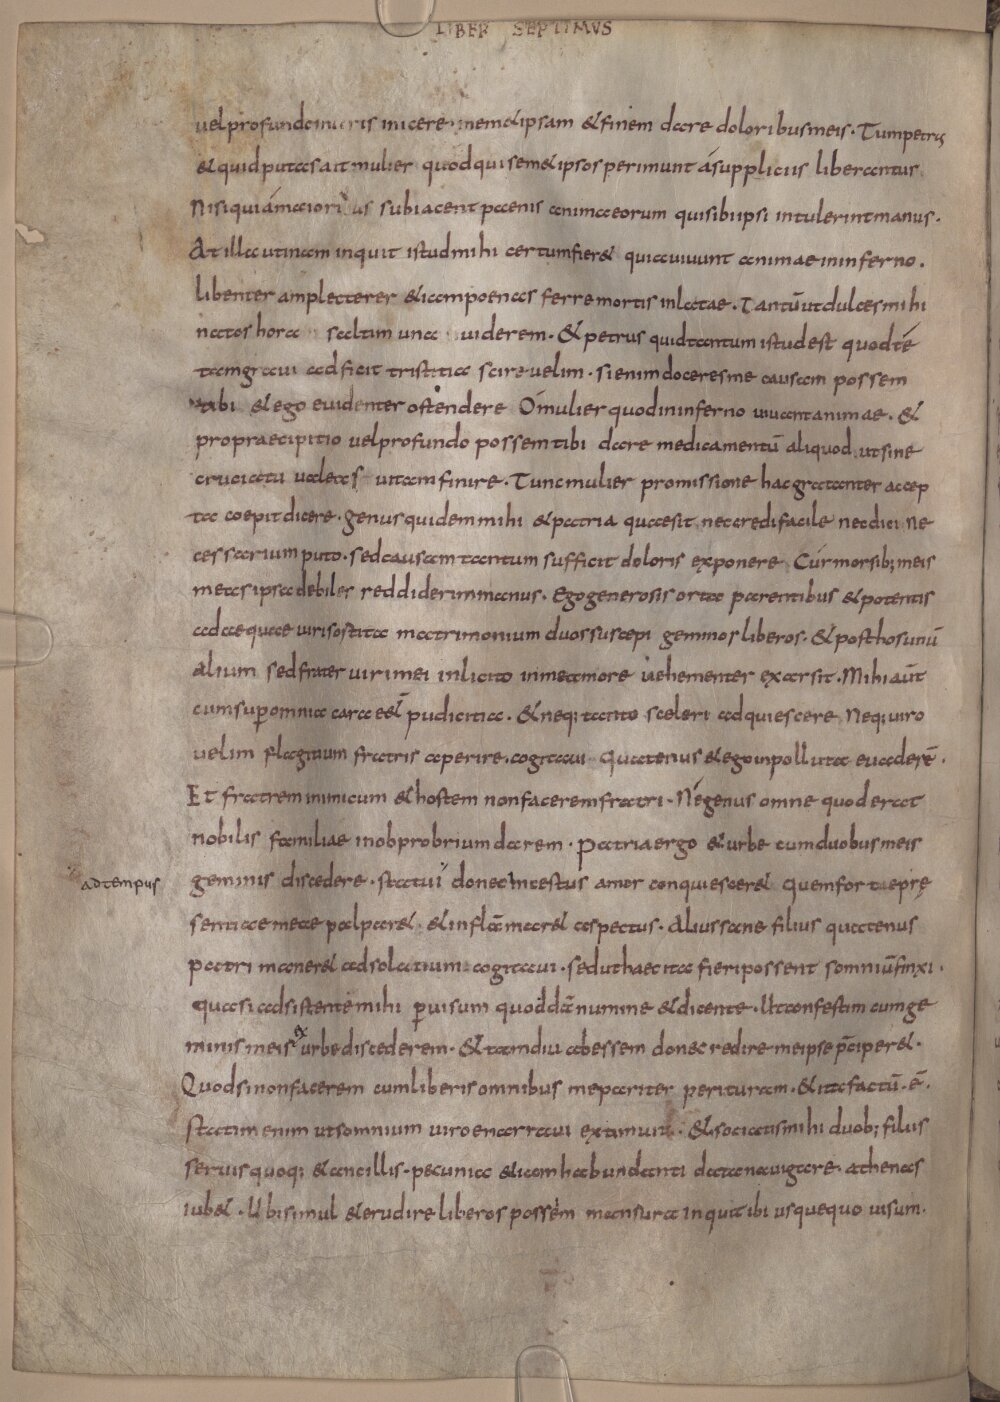 LIBER SEPTIMVS
uel profundo maris inicere memet ipsam & finem dare doloribus meis · Tum petrus
& quid putas ait mulier quod qui semet ipsos perimunt á suppliciis liberantur
Nisi quiá maioribus subiacent paenis animae eorum qui sibi ipsi intulerint manus ·
At illa utinam inquit istud mihi certum fieret quia uiuunt animae in inferno ·
libenter amplecterer etiam poenas ferre mortis inlatae · Tantū ut dulces mihi
natos hora saltim una uiderem · Et petrus quid tantum istud est quod té
tam graui adficit tristitia scire uelim · si enim doceres me causam possem
tibi & ego euidenter ostendere O mulier quod in inferno uiuant animae · &
pro praecipitio uel profundo possem tibi dare medicamentū aliquod ut sine
cruciatu ualeas uitam finire · Tunc mulier promissione hac gratanter accep
ta coepit dicere · genus quidem mihi & patria quae sit nec credi facile nec dici ne
cessarium puto · sed causam tantum sufficit doloris exponere Cúr morsib; meis
meas ipsa debiles reddiderim manus · Ego generosis orta parentibus & potentis
adaeque uiri sortita matrimonium duos suscepi geminos liberos · & post hos unū
alium sed frater uiri mei inlicito in me amore uehementer exarsit · Mihi aūt
cum sup omnia cara eēt pudicitia · & neq; tanto sceleri adquiescere Neq; uiro
uelim flagitium fratris aperire · cogitaui quatenus & ego inpolluta euaderē ·
Et fratrem inimicum & hostem non facerem fratri · Né genus omne quod erat
nobilis familiae in obprobrium darem · Patria ergo & urbe cum duobus meis
geminis discedere · statui donec incestus amor conquiesceret quem forte pre
ad tempus
sentiae meae palparet & inflāmaret aspectus · Alius sane filius quatenus
patri maneret ad solatium cogitaui · sed ut haec ita fieri possent somniū finxi ·
quasi adsistente mihi p uisum quodā numine & dicente · Ut confestim cum ge
minis meis ex urbe discederem · & tamdiu abessem donec redire me ipse pciperet ·
Quod si non facerem cum liberis omnibus me pariter perituram · & ita factū · ē ·
statim enim ut somnium uiro enarraui extimuit · & sociatis mihi duob; filiis
seruis quoq; & ancillis · pecunia etiam habundanti data nauigare · athenas
iubet · Ubi simul & erudire liberos possem mansura inquit ibi usquequo uisum ·